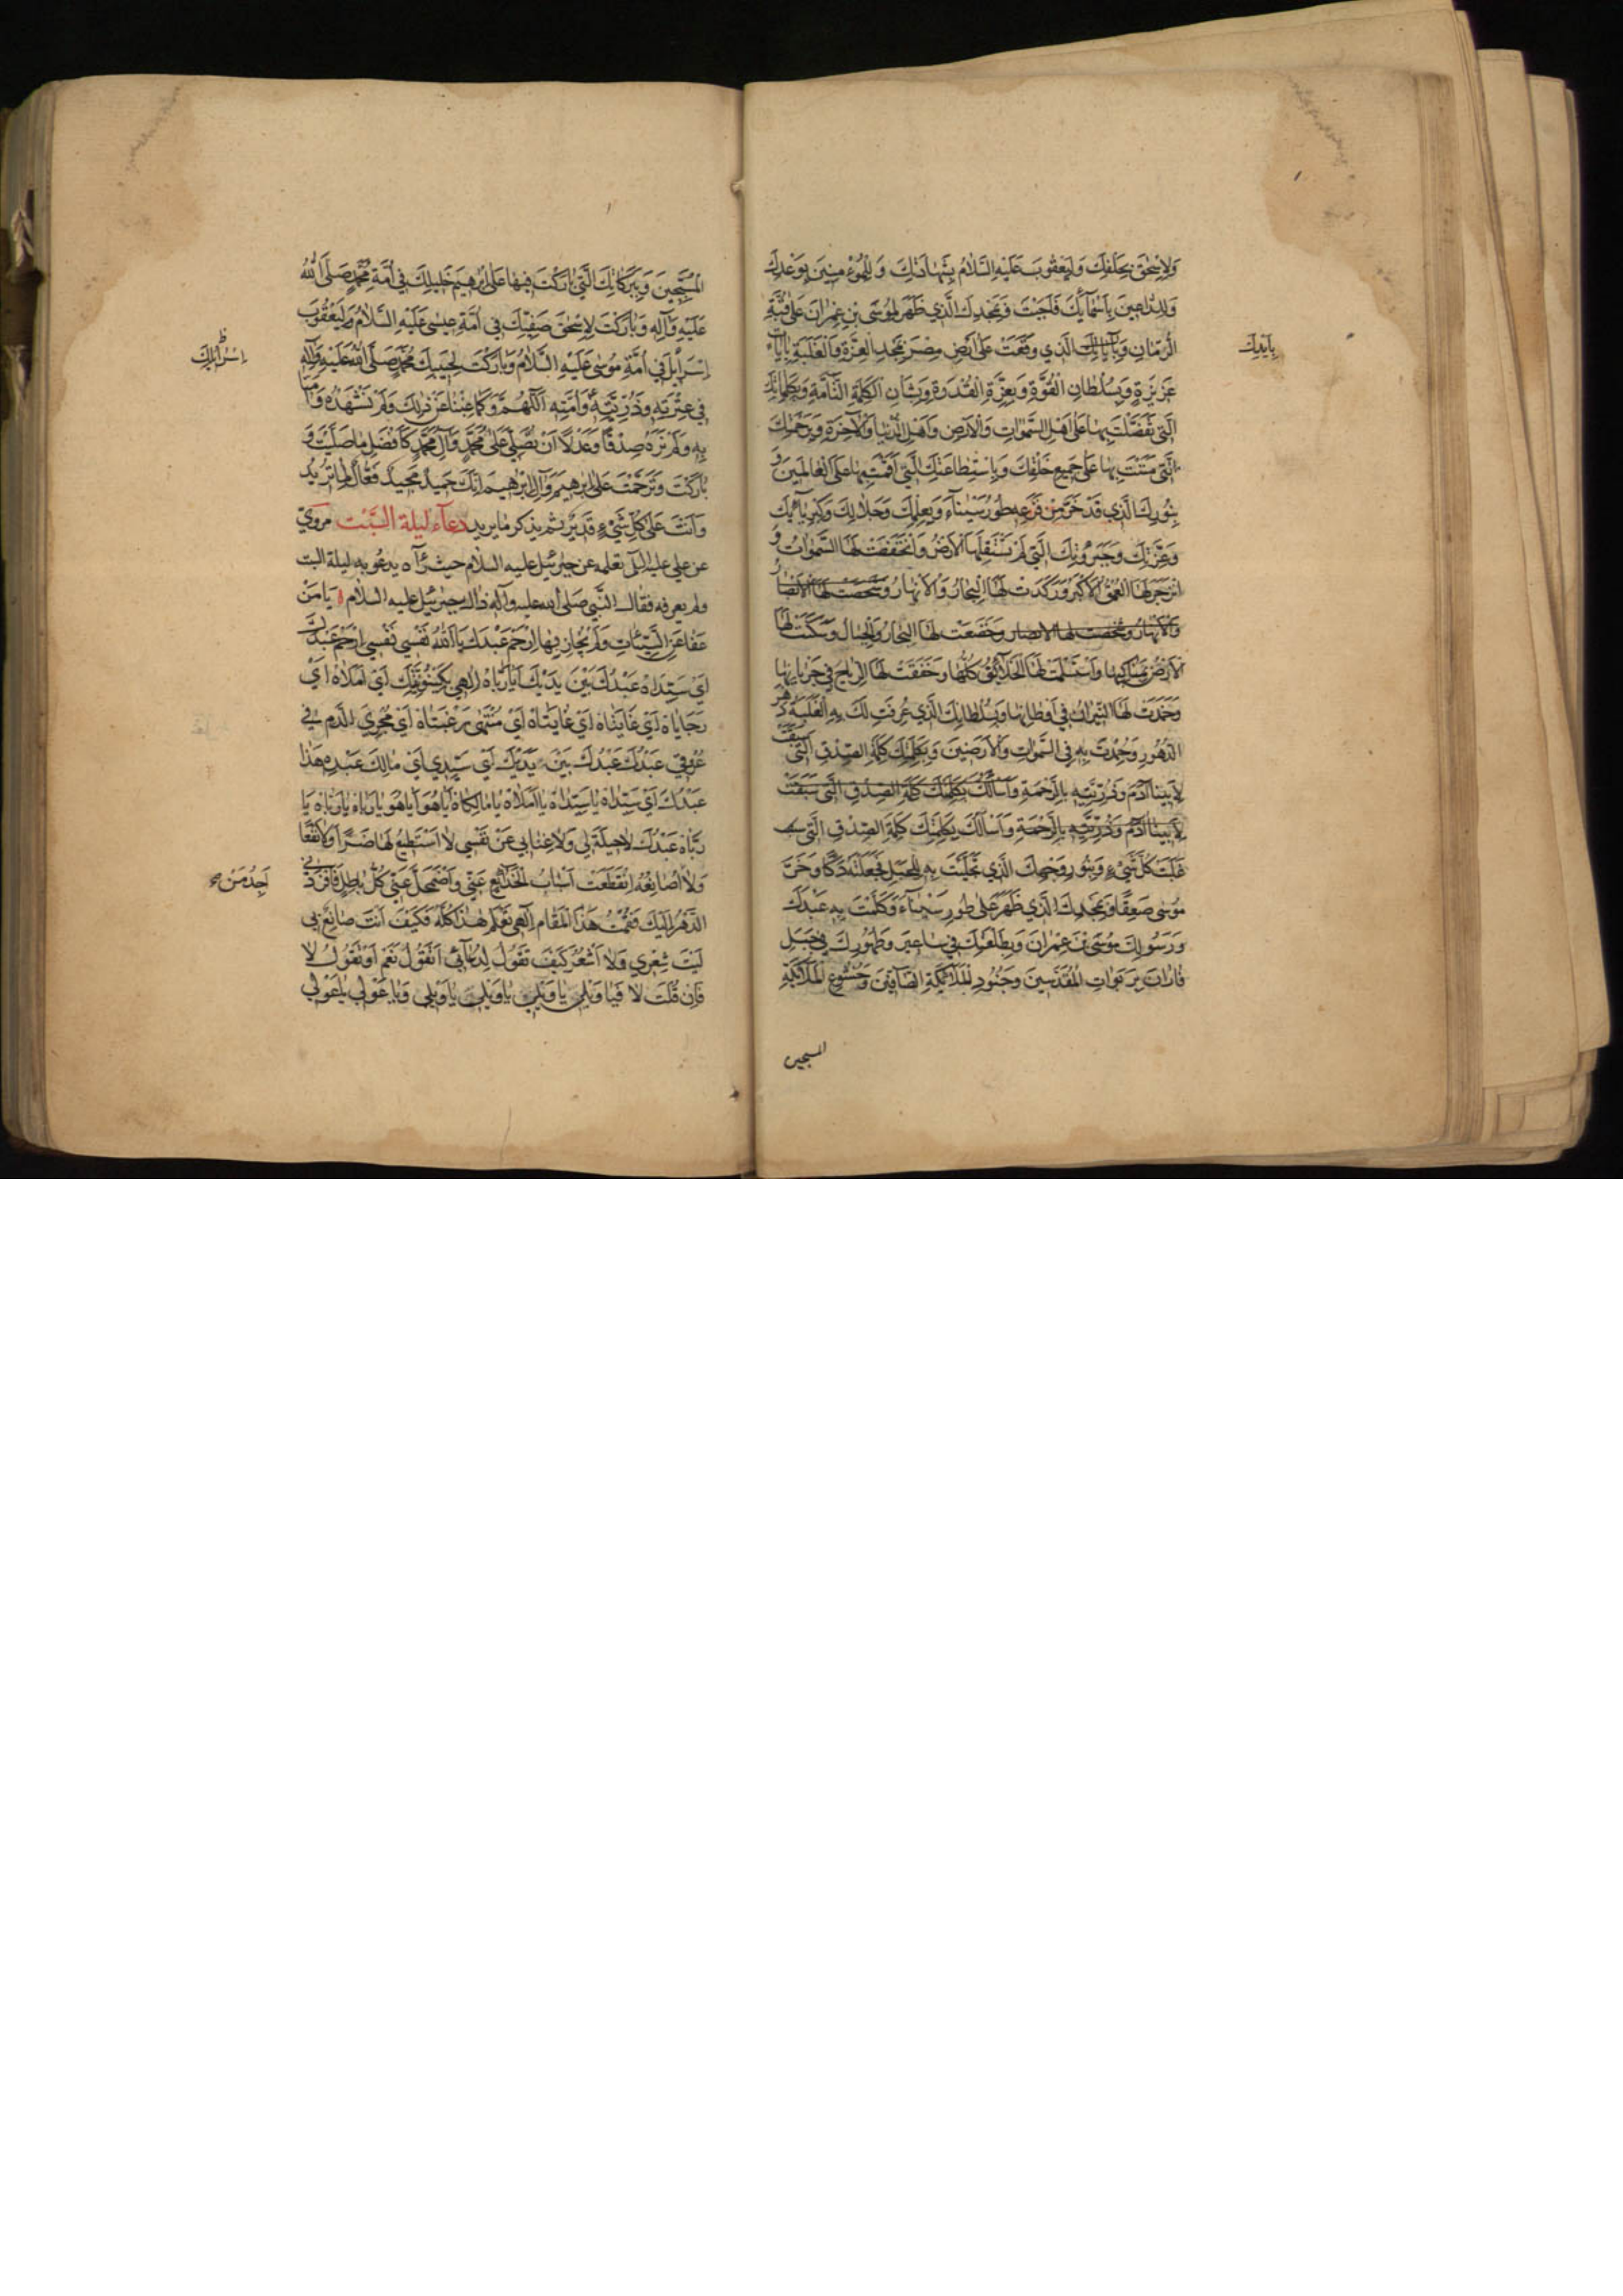 وَلِإِسْحٰقَ بِحَلْفِكَ وَلِيَعْقُوبَ عَلَيْهِ السَّلَامُ بِشَهَادَتِكَ وَلِلْمُؤْمِنِينَ بِوَعْدِكَ
وَلِلدَّاعِينَ بِأَسْمَائِكَ فَأَجَبْتَ وَبِمَجْدِكَ الَّذِي ظَهَرَ لِمُوسَى بْنِ عِمْرَانَ عَلَى قُبَّةِ
الرُّمَّانِ وَبِآيَاتِكَ الَّذِي وَقَعَتْ عَلَى أَرْضِ مِصْرَ بِمَجْدِ الْعِزَّةِ وَالْغَلَبَةِ بِآيَاتٍ
بِأَيْدِكَ
عَزِيزَةٍ وَبِسُلْطَانِ الْقُوَّةِ وَبِعِزَّةِ الْقُدْرَةِ وَبِشَأْنِ الْكَلِمَةِ التَّامَّةِ وَبِكَلِمَاتِكَ
الَّتِي تَفَضَّلْتَ بِهَا عَلَى أَهْلِ السَّمٰوَاتِ وَالْأَرْضِ وَأَهْلِ الدُّنْيَا وَالْآخِرَةِ وَبِرَحْمَتِكَ
الَّتِي مَنَنْتَ بِهَا عَلَى جَمِيعِ خَلْقِكَ وَبِاسْتِطَاعَتِكَ الَّتِي أَقَمْتَ بِهَا عَلَى الْعَالَمِينَ وَ
بِنُورِكَ الَّذِي قَدْ خَرَّ مِنْ فَزَعِهِ طُورُ سَيْنَاءَ وَبِعِلْمِكَ وَجَلَالِكَ وَكِبْرِيَائِكَ
وَعِزَّتِكَ وَجَبَرُوتِكَ الَّتِي لَمْ تَسْتَقِلَّهَا الْأَرْضُ وَانْخَفَضَتْ لَهَا السَّمٰوَاتُ وَ
انْزَجَرَ لَهَا الْعُمْقُ الْأَكْبَرُ وَرَكَدَتْ لَهَا الْبِحَارُ وَالْأَنْهَارُ وَشَخَصَتْ لَهَا الْأَبْصَارُ
وَالْأَنْهَارُ وَشَخَصَتْ لَهَا الْأَبْصَارُ وَخَضَعَتْ لَهَا الْبِحَارُ وَالْجِبَالُ وَسَكَنَتْ لَهَا
الْأَرْضُ بِمَنَاكِبِهَا وَاسْتَسْلَمَتْ لَهَا الْخَلَائِقُ كُلُّهَا وَخَفَقَتْ لَهَا الرِّيَاحُ فِي جَرَيَانِهَا
وَخَمَدَتْ لَهَا النِّيرَانُ فِي أَوْطَانِهَا وَبِسُلْطَانِكَ الَّذِي عُرِفَتْ لَكَ بِهِ الْغَلَبَةُ دَهْرَ
الدُّهُورِ وَحُمِدْتَ بِهِ فِي السَّمٰوَاتِ وَالْأَرَضِينَ وَبِكَلِمَتِكَ كَلِمَةِ الصِّدْقِ الَّتِي سَبَقَتْ
لِأَبِينَا آدَمَ وَذُرِّيَّتِهِ بِالرَّحْمَةِ وَأَسْأَلُكَ بِكَلِمَتِكَ كَلِمَةِ الصِّدْقِ الَّتِي سَبَقَتْ
لِأَبِينَا آدَمَ وَذُرِّيَّتِهِ بِالرَّحْمَةِ وَأَسْأَلُكَ بِكَلِمَتِكَ كَلِمَةِ الصِّدْقِ الَّتِي
غَلَبَتْ كُلَّ شَيْءٍ وَبِنُورِ وَجْهِكَ الَّذِي تَجَلَّيْتَ بِهِ لِلْجَبَلِ فَجَعَلْتَهُ دَكًّا وَخَرَّ
مُوسَى صَعِقًا وَبِمَجْدِكَ الَّذِي ظَهَرَ عَلَى طُورِ سَيْنَاءَ وَكَلَّمْتَ بِهِ عَبْدَكَ
وَرَسُولَكَ مُوسَى بْنَ عِمْرَانَ وَبِطَلْعَتِكَ فِي سَاعِيرَ وَظُهُورِكَ فِي جَبَلِ
فَارَانَ بِرَبَوَاتِ الْمُقَدَّسِينَ وَجُنُودِ الْمَلَائِكَةِ الصَّافِّينَ وَخُشُوعِ الْمَلَائِكَةِ
المسبحين
الْمُسَبِّحِينَ وَبِبَرَكَاتِكَ الَّتِي بَارَكْتَ فِيهَا عَلَى إِبْرٰهِيمَ خَلِيلِكَ فِي أُمَّةِ مُحَمَّدٍ صَلَّى اللهُ
عَلَيْهِ وَآلِهِ وَبَارَكْتَ لِإِسْحٰقَ صَفِيِّكَ فِي أُمَّةِ عِيسَى عَلَيْهِ السَّلَامُ وَلِيَعْقُوبَ
إِسْرَائِيلَ فِي أُمَّةِ مُوسَى عَلَيْهِ السَّلَامُ وَبَارَكْتَ لِحَبِيبِكَ مُحَمَّدٍ صَلَّى اللهُ عَلَيْهِ وَآلِهِ
إِسْرَائِيلِكَ
فِي عِتْرَتِهِ وَذُرِّيَّتِهِ وَأُمَّتِهِ اللّٰهُمَّ وَكَمَا غِبْنَا عَنْ ذٰلِكَ وَلَمْ نَشْهَدْهُ وَآمَنَّا
بِهِ وَلَمْ نَرَهُ صِدْقًا وَعَدْلًا أَنْ تُصَلِّيَ عَلَى مُحَمَّدٍ وَآلِ مُحَمَّدٍ كَأَفْضَلِ مَا صَلَّيْتَ وَ
بَارَكْتَ وَتَرَحَّمْتَ عَلَى إِبْرٰهِيمَ وَآلِ إِبْرٰهِيمَ إِنَّكَ حَمِيدٌ مَجِيدٌ فَعَّالٌ لِمَا تُرِيدُ
وَأَنْتَ عَلَى كُلِّ شَيْءٍ قَدِيرٌ ثم يذكر ما يريد دعاء ليلة السبت مروي
عن علي عليه السلام تعلمه عن جبرئيل عليه السلام حيث رآه يدعو به ليلة السبت
ولم يعرفه فقال النبي صلى الله عليه وآله ذاك جبرئيل عليه السلام يَا مَنْ
عَفَا عَنِ السَّيِّئَاتِ وَلَمْ يُجَازِ بِهَا ارْحَمْ عَبْدَكَ يَا اللهُ نَفْسِي نَفْسِي ارْحَمْ عَبْدَكَ
أَيْ سَيِّدَاهُ عَبْدُكَ بَيْنَ يَدَيْكَ أَيَا رَبَّاهُ إِلٰهِي بِكَيْنُونَتِكَ أَيْ أَمَلَاهُ أَيْ
رَجَايَاهُ أَيْ غَايَتَاهُ أَيْ غَايَتَاهُ أَيْ مُنْتَهَى رَغْبَتَاهُ أَيْ مُجْرِيَ الدَّمِ فِي
عُرُوقِي عَبْدُكَ عَبْدُكَ بَيْنَ يَدَيْكَ أَيْ سَيِّدِي أَيْ مَالِكَ عَبْدِهِ هٰذَا
عَبْدُكَ أَيْ سَيِّدَاهُ يَا سَيِّدَاهُ يَا أَمَلَاهُ يَا مَالِكَاهُ أَيَا هُوَ أَيَا هُوَ يَا رَبَّاهُ يَا رَبَّاهُ يَا
رَبَّاهُ عَبْدُكَ لَا حِيلَةَ لِي وَلَا غِنَا بِي عَنْ نَفْسِي لَا أَسْتَطِيعُ لَهَا ضَرًّا وَلَا نَفْعًا
وَلَا أُصَانِعُهُ انْقَطَعَتْ أَسْبَابُ الْخَدَائِعِ عَنِّي وَاضْمَحَلَّ عَنِّي كُلُّ بَاطِلٍ فَأَفْرَدَنِي
أَجِدُ مَنْ
الدَّهْرُ إِلَيْكَ فَقُمْتُ هٰذَا الْمَقَامَ إِلٰهِي تَعْلَمُ هٰذَا كُلَّهُ فَكَيْفَ أَنْتَ صَانِعٌ بِي
لَيْتَ شِعْرِي وَلَا أَشْعُرُ كَيْفَ تَقُولُ لِدُعَائِي أَتَقُولُ نَعَمْ أَوْ تَقُولُ لَا
فَإِنْ قُلْتَ لَا فَيَا وَيْلِي يَا وَيْلِي يَا وَيْلِي يَا وَيْلِي وَيَا عَوْلِي يَا عَوْلِي